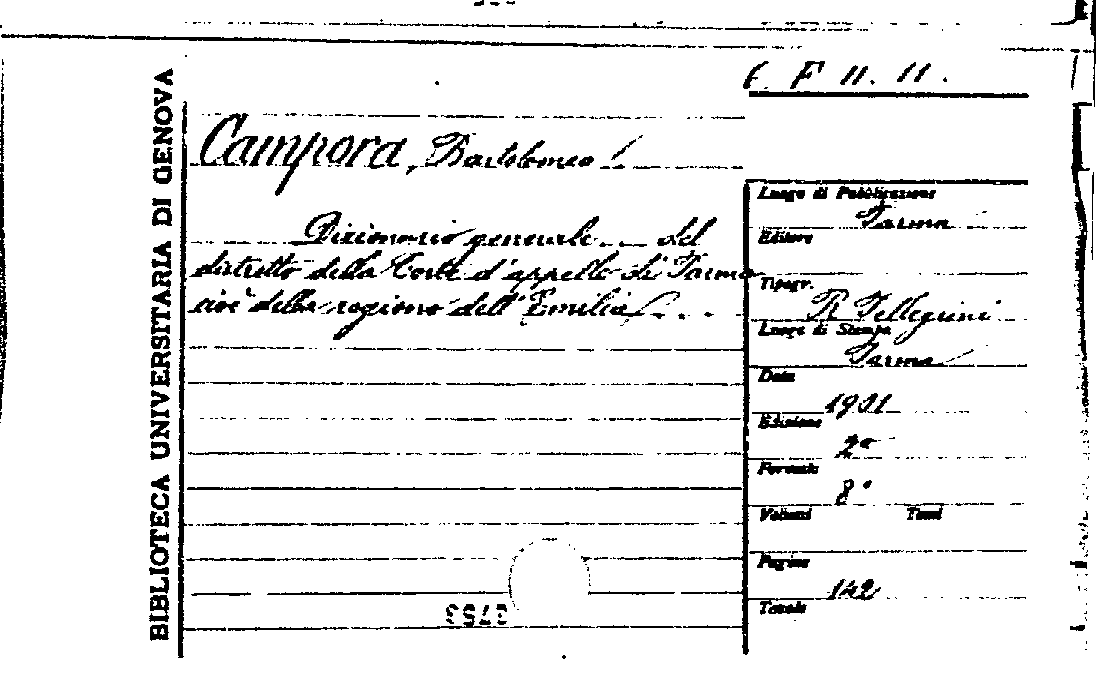 6 F 11. 11.
BIBLIOTECA UNIVERSITARIA DI GENOVA
Campora, Bartolomeo
Dizionario generale ... del
distretto della Corte d'appello di Parma
cioè della regione dell'Emilia ...
Luogo di Pubblicazione
Parma
Editore
Tipogr.
R. Pellegrini
Luogo di Stampa
Parma
Data
1901
Edizione
2ª
Formato
8°
Volumi Tomi
Pagine
142
Tavole